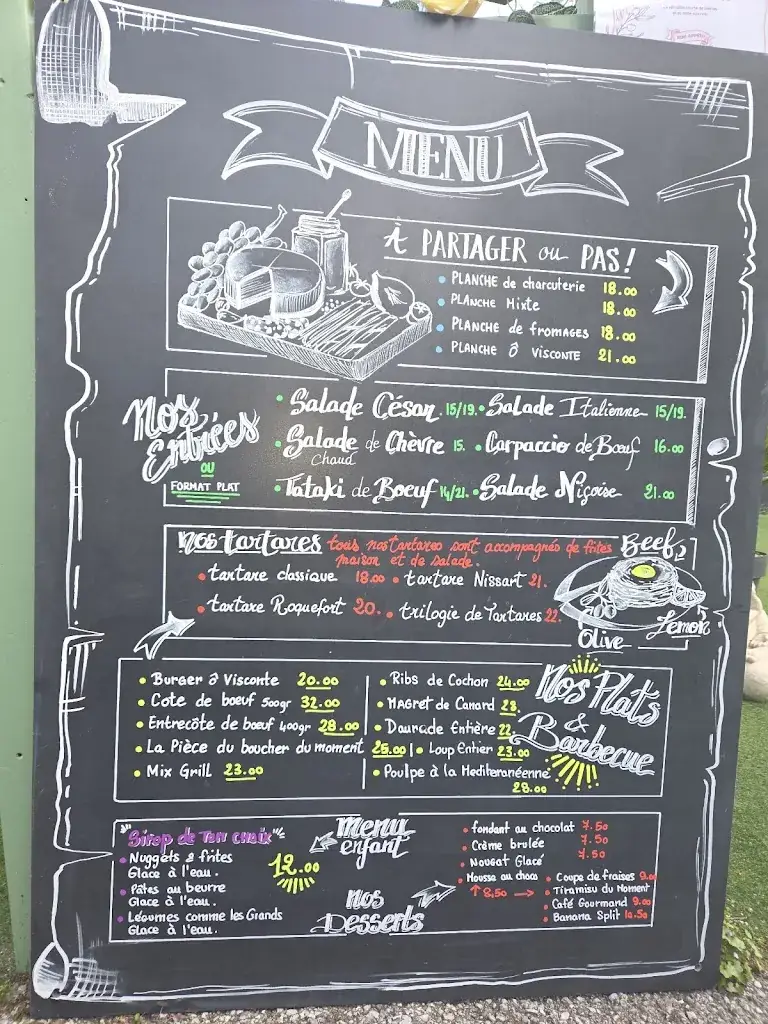 MENU
À PARTAGER ou PAS!
• PLANCHE de charcuterie 18.00
• PLANCHE Mixte 18.00
• PLANCHE de fromages 18.00
• PLANCHE Ô VISCONTE 21.00
Nos Entrées
ou
FORMAT PLAT
• Salade César 15/19. • Salade Italienne 15/19.
• Salade de Chèvre 15. • Carpaccio de Bœuf 16.00
Chaud
• Tataki de Boeuf 14/21. • Salade Niçoise 21.00
nos tartares tous nos tartares sont accompagnés de frites
maison et de salade.
• tartare classique 18.00 • tartare Nissart 21.
• tartare Roquefort 20. • trilogie de Tartares 22.
Beef
Olive
Lemon
• Burger Ô Visconte 20.00
• Cote de bœuf 500gr 32.00
• Entrecôte de bœuf 400gr 28.00
• La Pièce du boucher du moment 25.00
• Mix Grill 23.00
• Ribs de Cochon 24.00
• MAGret de Canard 28.
• Daurade Entière 22.
• Loup Entier 23.00
• Poulpe à la Mediteranéenne
28.00
Nos Plats
&
Barbecue
"Sirop de Ton choix"
• Nuggets & frites
Glace à l'eau.
• Pâtes au beurre
Glace à l'eau.
• Légumes comme les Grands
Glace à l'eau.
12.00
Menu
enfant
Nos
Desserts
• fondant au chocolat 7.50
• Crème brulée 7.50
• Nougat Glacé 7.50
• Mousse au choco
↑ 8,50 →
• Coupe de fraises 9.00
• Tiramisu du Moment
• Café Gourmand 9.00
• Banana Split 10.50